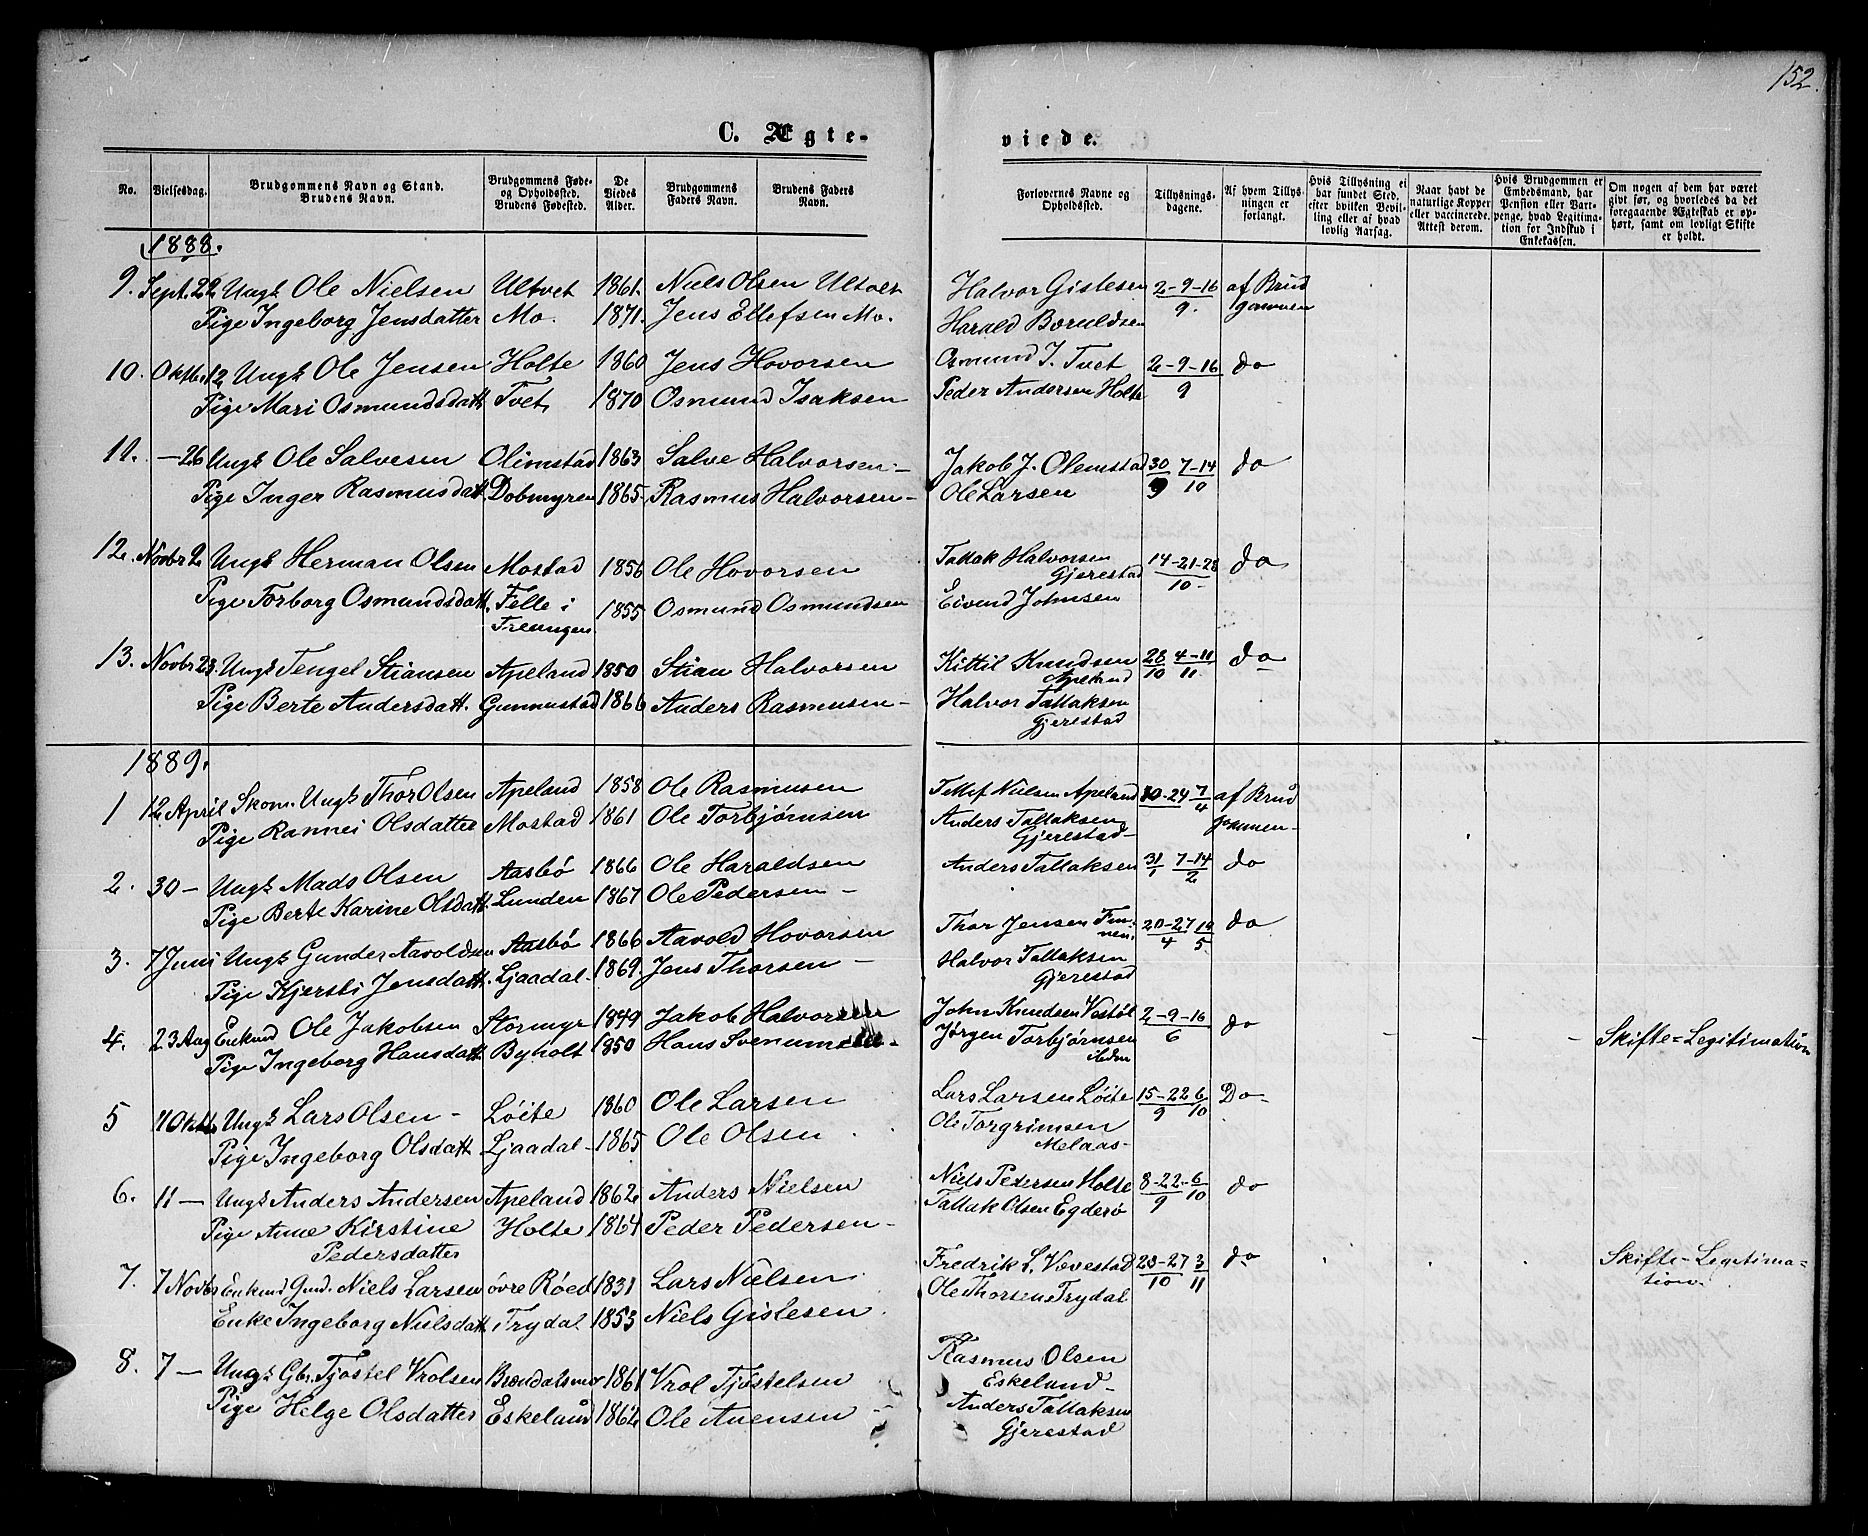 152.
C. Ægte-
viede.
No.
Vielsesdag.
Brudgommens Navn og Stand.
Brudens Navn.
Brudgommens Føde-
og Opholdsted.
Brudens Fødested.
De
Viedes
Alder.
Brudgommens
Faders Navn.
Brudens Faders
Navn.
Forlovernes Navne og
Opholdsted.
Tillysnings-
dagene.
Af hvem Tillys-
ningen er
forlangt.
Hvis Tillysning ei
har fundet Sted,
efter hvilken Bevil-
ling eller af hvad
lovlig Aarsag.
Naar havt de
naturlige Kopper
eller vaccinerede.
Attest derom.
Hvis Brudgommen er
Embedsmand, har
Pension eller Vart-
penge, hvad Legitima-
tion for Indskud i
Enkekassen.
Om nogen af dem har været
givt før, og hvorledes da det
foregaaende Ægteskab er op-
hørt, samt om lovligt Skifte
er holdt.
1888.
9. Sept. 22 Ungk Ole Nielsen Ultvet 1861. Niels Olsen Ultvet Halvor Gislesen 2-9-16 af Brud
Pige Ingeborg Jensdatter Mo. 1871. Jens Ellefsen Mo. Harald 9. gommen
10. Oktbr. 12 Ungk Ole Jensen Holte 1860 Jens Hovorsen Osmund I. Tvet 2-9-16 do
Pige Mari Osmundsdatt Tvet 1870 Osmund Isaksen Peder Andersen Holte 9
11. —26 Ungk Ole Salvesen Olimstad 1863 Salve Halvorsen- Jakob J. Olemstad 30 7-14 do
Pige Inger Rasmusdatt. Dobmyren 1865 Rasmus Halvorsen- Ole Larsen 9 10
12. Novbr 2 Ungk Herman Olsen Mostad 1856 Ole Hovorsen Tallak Halvorsen 14-21-28 do
Gjerestad 10-
Pige Torborg Osmundsdatt. Felle i 1855 Osmund Osmundsen Eivend Johnsen
Treungen
13. Novbr 23. Ungk Tengel Stiansen Apeland 1850 Stian Halvorsen Kittil Knudsen 28 4-11 do
Apeland 10 11
Pige Berte Andersdatt. Gunnustad 1866 Anders Rasmusen- Halvor Tallaksen
Gjerestad
1889.
1 12 April Skom. Ungk Thor Olsen Apeland 1858 Ole Rasmusen Tellef Nielsen Apeland 24 7 af Brud
Pige Rannei Olsdatter Mostad 1861 Ole Torbjørnsen Anders Tallaksen 4 gommen-
Gjerestad-
2. 30- Ungk Mads Olsen Aasbø 1866 Ole Haraldsen Anders Tallaksen 31 7-14 do
Pige Berte Karine Olsdatt. Lunden 1867 Ole Pedersen- 1 2
3. 7 Juni Ungk Gunder Aavoldsen Aasbø 1866 Aavold Hovorsen Thor Jensen 20-27 do
4 5
Pige Kjersti Jensdatt. Ljaadal- 1869. Jens Thorsen- Halvor Tallaksen
Gjerestad
4. 23 Aug Enkmd Ole Jakobsen Stormyr 1849 Jakob Halvorsen John Knudsen Vestøl 2-9-16 do Skifte=Legitimation
Pige Ingeborg Hansdatt. Byholt 1850 Hans Jørgen Torbjørnsen 6
ibdm
5 Ungk Lars Olsen- Løite 1860 Ole Larsen Lars Larsen Løite 15-22 6 Do-
Pige Ingeborg Olsdatt Ljaadal- 1865 Ole Olsen Ole Torgrimsen 9 10
Melaas-
6. 11- Ungk Anders Andersen Apeland 1862 Anders Nielsen Niels Pedersen Holte 8-22-6 do
Pige Anne Kirstine Holte 1864 Peder Pedersen- Tallak Olsen Egderø 9 10
Pedersdatter
7. 7 Novbr Enkmd Gmd. Niels Larsen øvre Røed 1831 Lars Nielsen Fredrik L. Vevestad 27 3 do Skifte-Legitima=
tion
Enke Ingeborg Nielsdatt Trydal 1853 Niels Gislesen Ole Thorsen Trydal 10 11
8. 7- Ungk Gbr. Tjøstel Vrolsen 1861 Vrol Tjøstelsen Rasmus Olsen
Eskeland-
Pige Helge Olsdatter Eskeland 1862 Ole Auensen- Anders Tallaksen
Gjerestad